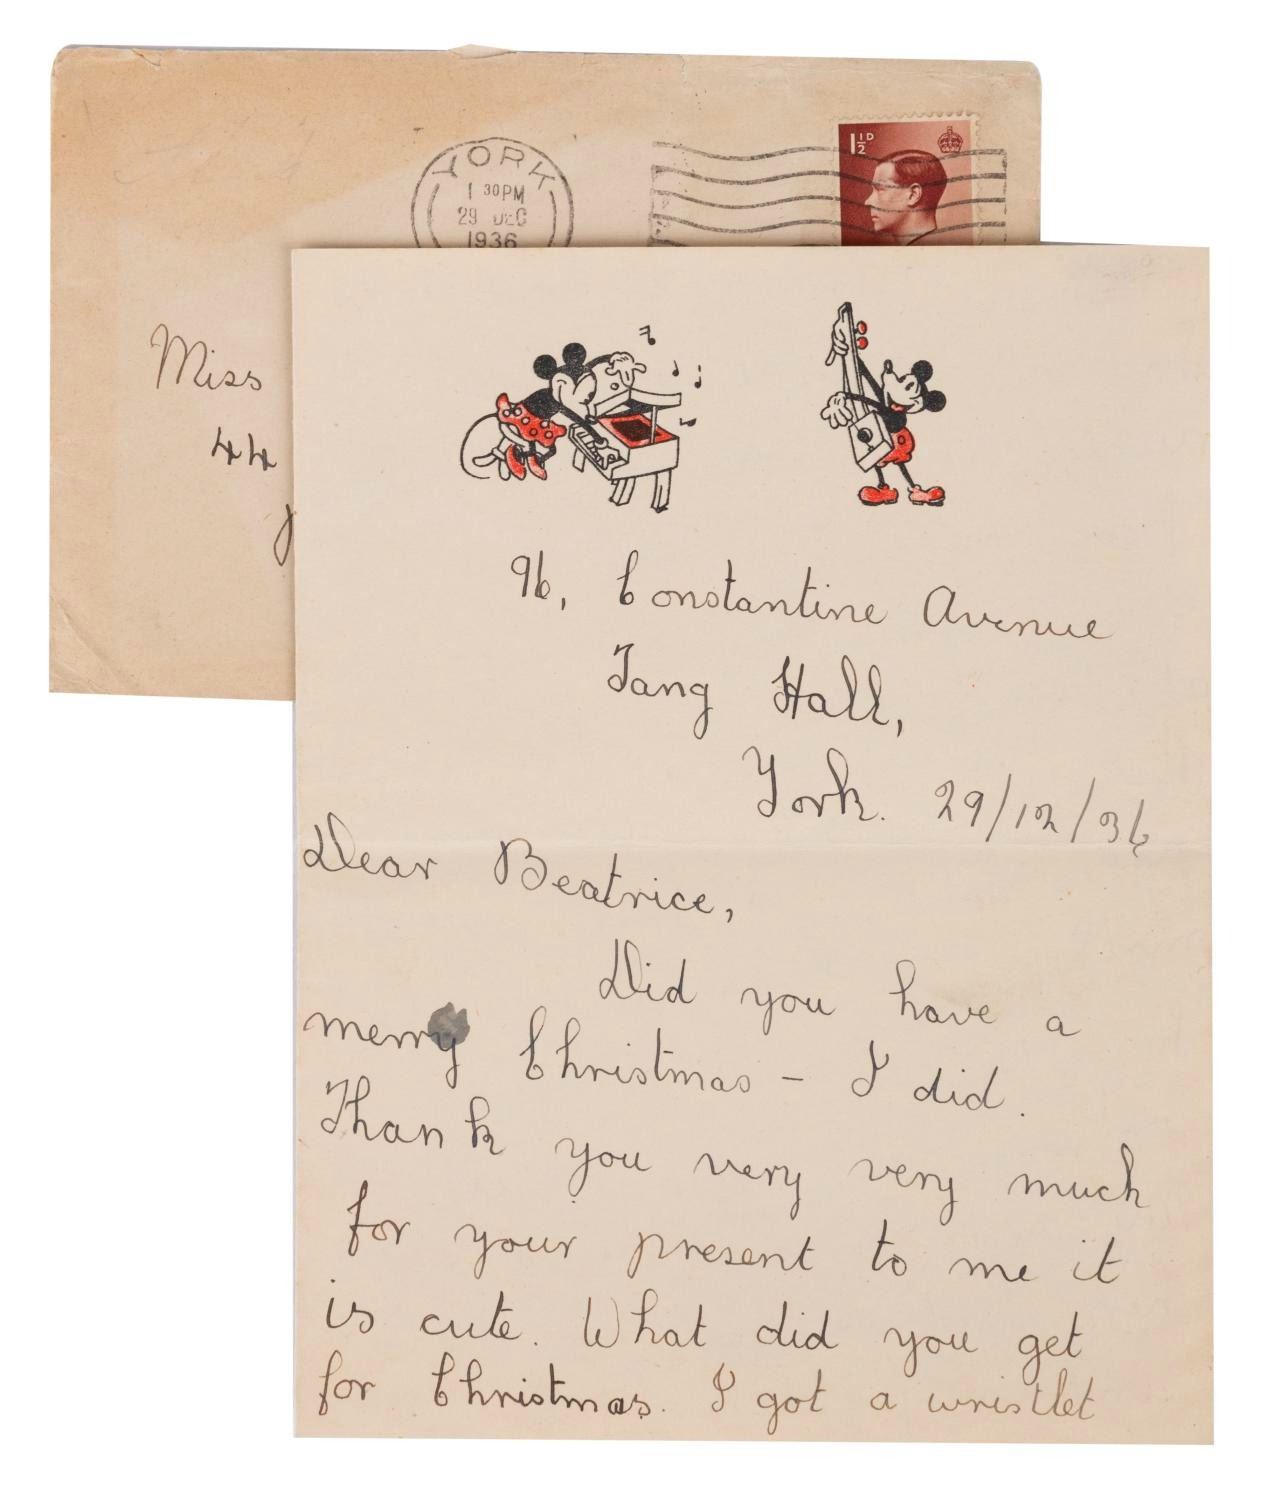 YORK
1 30PM
29 DEC
1936
1½D
Miss
44
96, Constantine Avenue
Tang Hall,
York. 29/12/36
Dear Beatrice,
Did you have a
merry Christmas - I did.
Thank you very very much
for your present to me it
is cute. What did you get
for Christmas. I got a wristlet